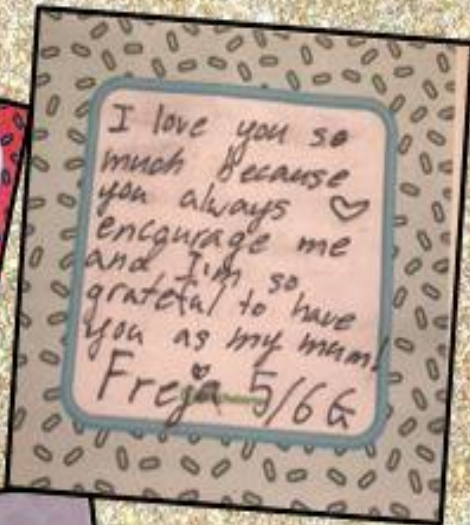 I love you so
much because
you always ♡
encourage me
and I'm so
grateful to have
you as my mum!
Freja 5/6 G